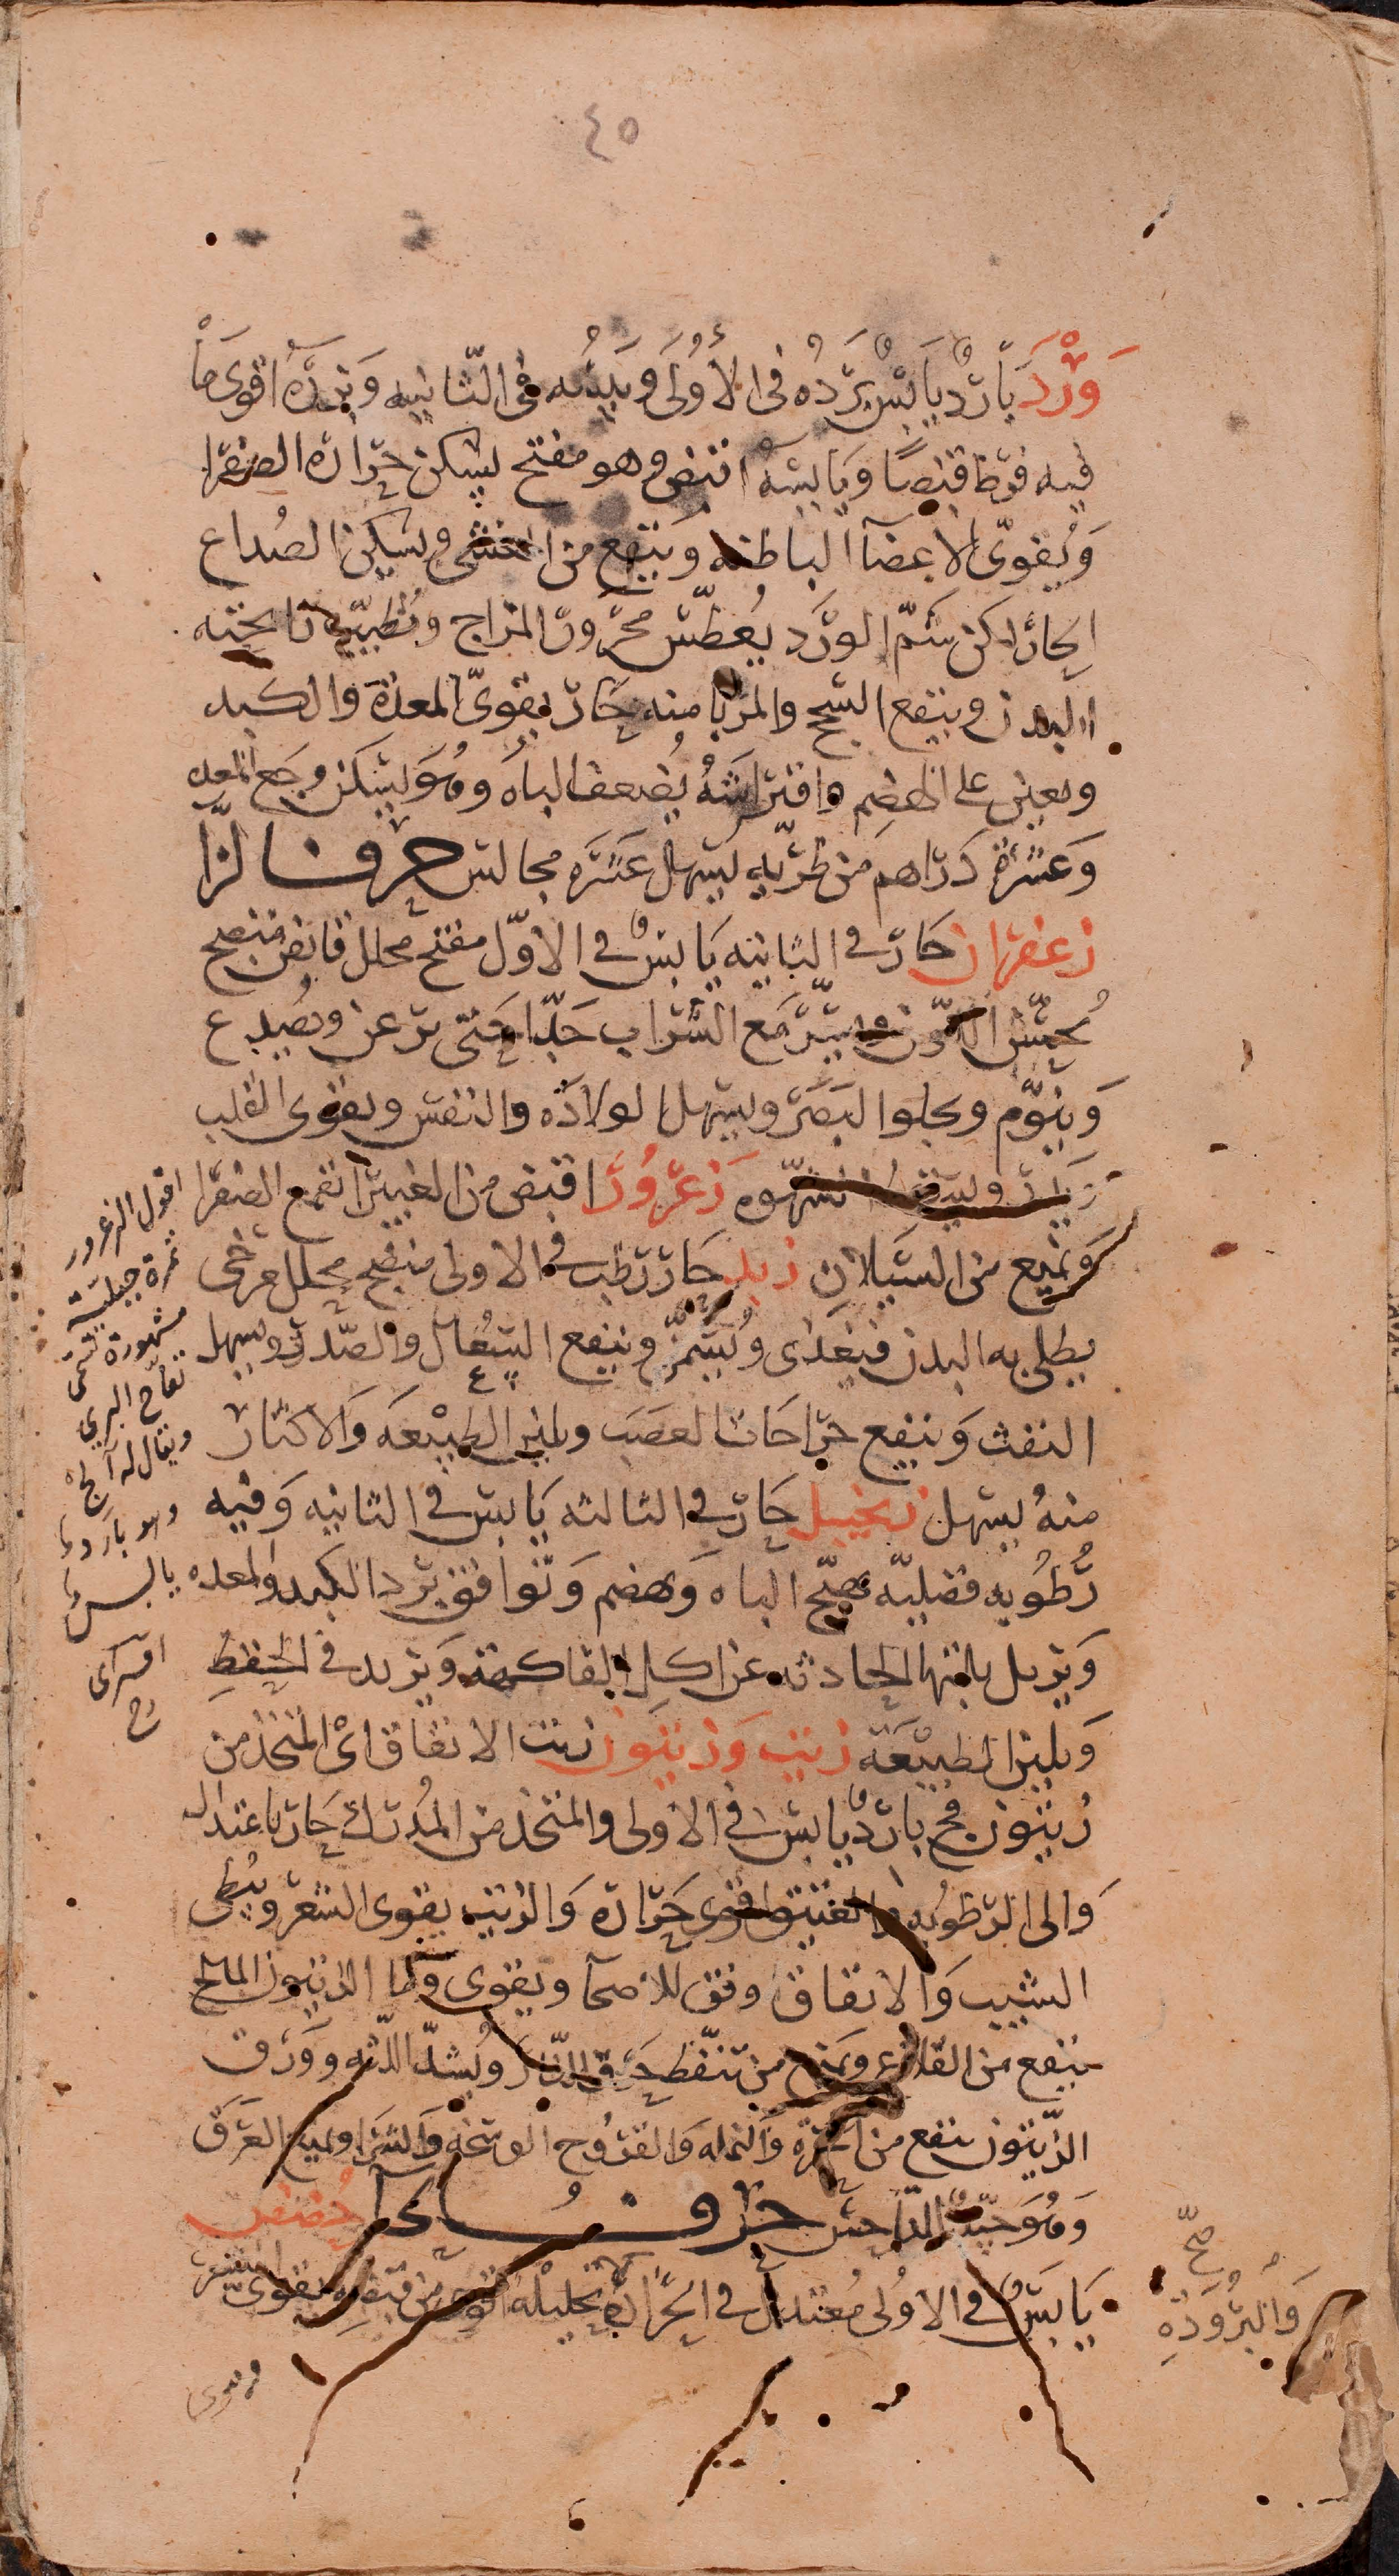 ٤٥
وَرْد بَارِدٌ يَابِسٌ بَرْدُه فى الأُولَى ويبسه فى الثانيه وَبزره اقوى مَا
فيه قبضًا وَيَابِسه اقبض وهو مفتح يسكن حرارة الصفرا
وَيُقوّى الاعضآ الباطنه وَينفع من الغشى ويسكن الصُداع
الحار لكن شمّ الوَرد يُعطّس محرور المزاج ويُطيّب رايحته
البدن وينفع السحج والمربا منه حَارّ يقوّى المعدة والكبد
ويعين على الهضم وافتراشهُ يُضعف البَاه وهُوَ يسكن وجَع المعده
وَعشرة دَرَاهم من طريّه يسهل عَشرَه مجالس حرف الزا
زعفران حَارّ فى الثانيه يَابسٌ فى الاوّل مفتح محلل قابض منضج
يُحسّن اللون مَع الشراب جدّا حَتى يرعن ويُصدع
وَينوّم ويجلوا البَصَر ويسهل الولادَه والنفس ويقوى القلب
الشهّوه زَعرُورٌ اقبض من الغبيرا يقمع الصفرا
وَيمنع من السَّيَلاَن زبد حَارّ رَطب فى الاولى منضج محلل مرخى
يطلى به البدن فيغذى ويُسَمِّنُ وينفع السُعَال والصّدر ويسهل
النفث وَينفع جرَاحَات العصَب ويلين الطبيْعَه وَالاكثار
منهُ يسهل زنجبيل حَارّ فى الثالثه يَابس فى الثانيه وَفيه
رُطُوبه فضليّه يهيّج الباه وَيهضم وَتوافق بَرد الكبد والمعده
وَيزيل بلتها الحادثه عن اكل الفاكهة وَيزيد فى الحفظ
وَيلين الطبيْعَة زيت وَزيتون زيت الانفاق اى المتخذ من
زيتون فج بَاردٌ يابسٌ فى الاولى والمتخذ من المُدرك حَار باعتدال
وَالى الرطوبه والعتيق اقوى حَرَارة وَالزيت يقوى الشعر ويُبطى
الشيب وَالانفاق وفق للاصحآ ويقوى وامّا الزيتون المملح
ينفع من القلاع وَيمنع من تنفّط حَرق النّار ويُشدّ اللّثه ووَرَق
الزّيتون ينفع من الحمرة وَالنمله وَالقرُوح الوسخه وَالشرا ويمنع العَرَق
وَهُوَ جيّدٌ للداحس حرف الحآ حُضض
يَابسٌ فى الاوُلى مُعتدل فى الحَرَارة تحليله اقوى من قبضه يقوى الشعر
اقول الزعرور
ثمرة جبلية
مشهورة تسمى
تفاح البري
ويقال له آلج
وهو بارد
يابس
اقسرائى
رح
صحّ
وَالبُرُوْدَةِ
ويروى